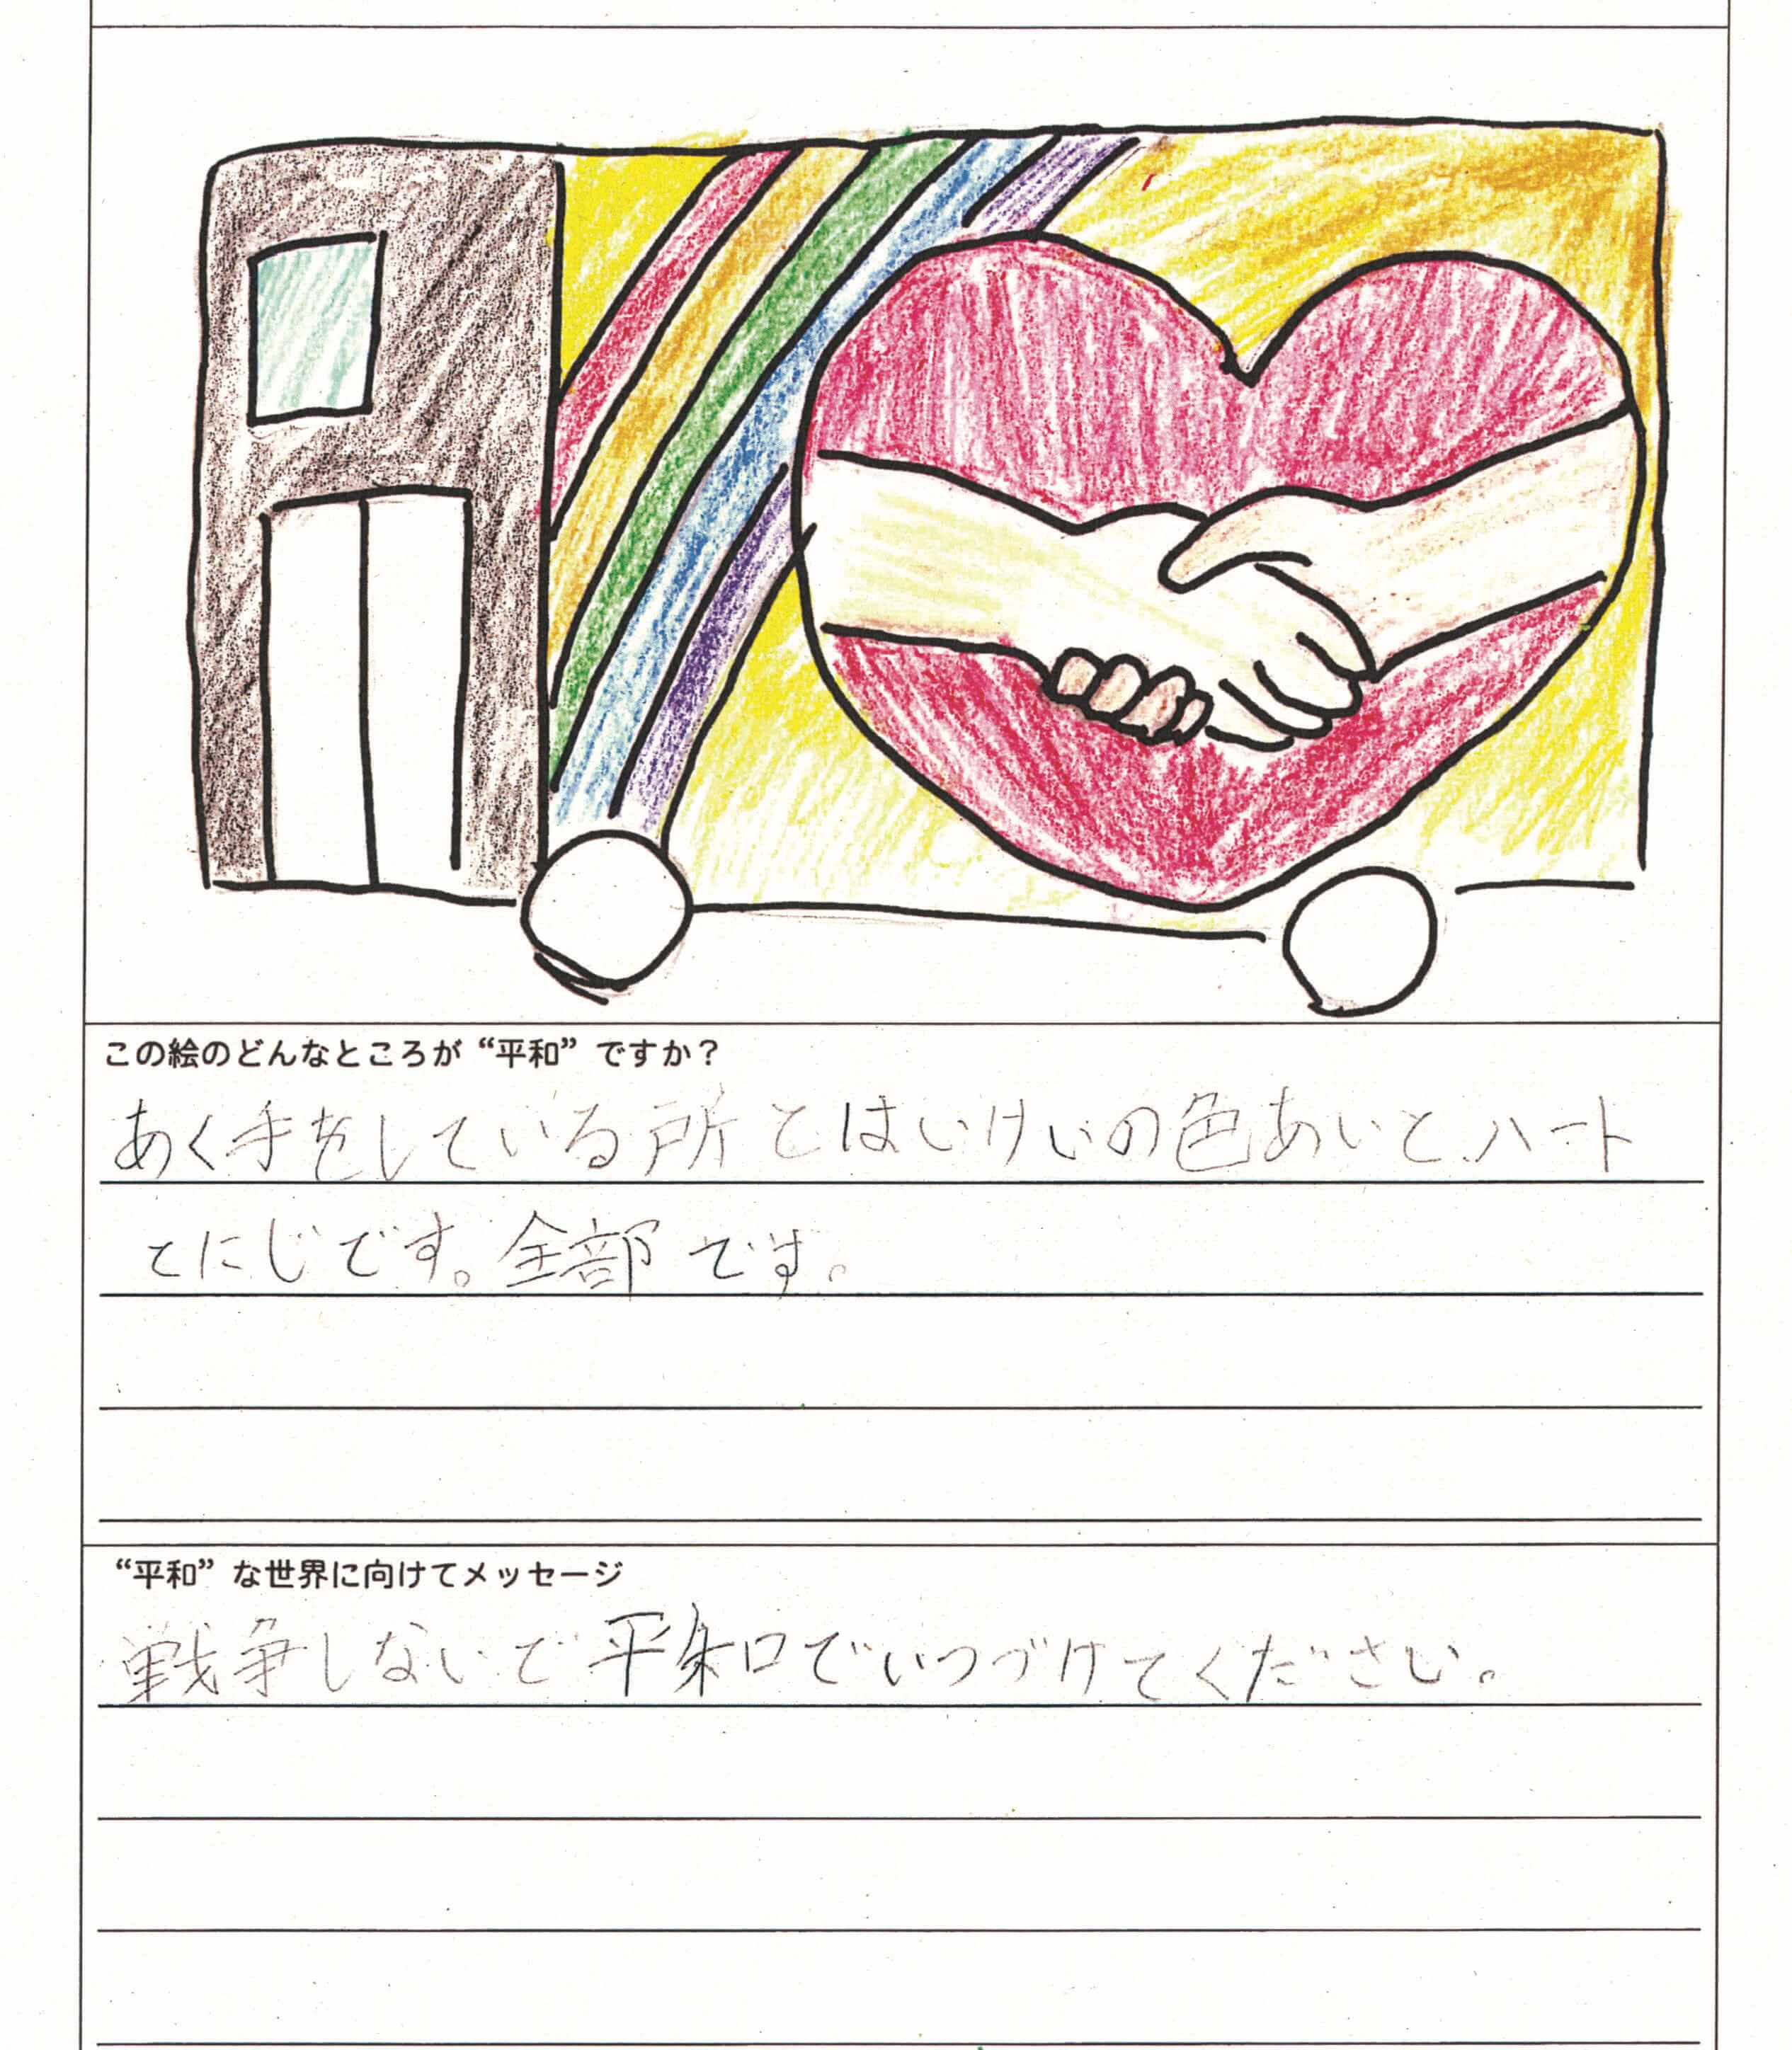 この絵のどんなところが“平和”ですか？
あく手をしている所とはいけいの色あいと、ハート
とにじです。全部です。
“平和”な世界に向けてメッセージ
戦争しないで平和でいつづけてください。